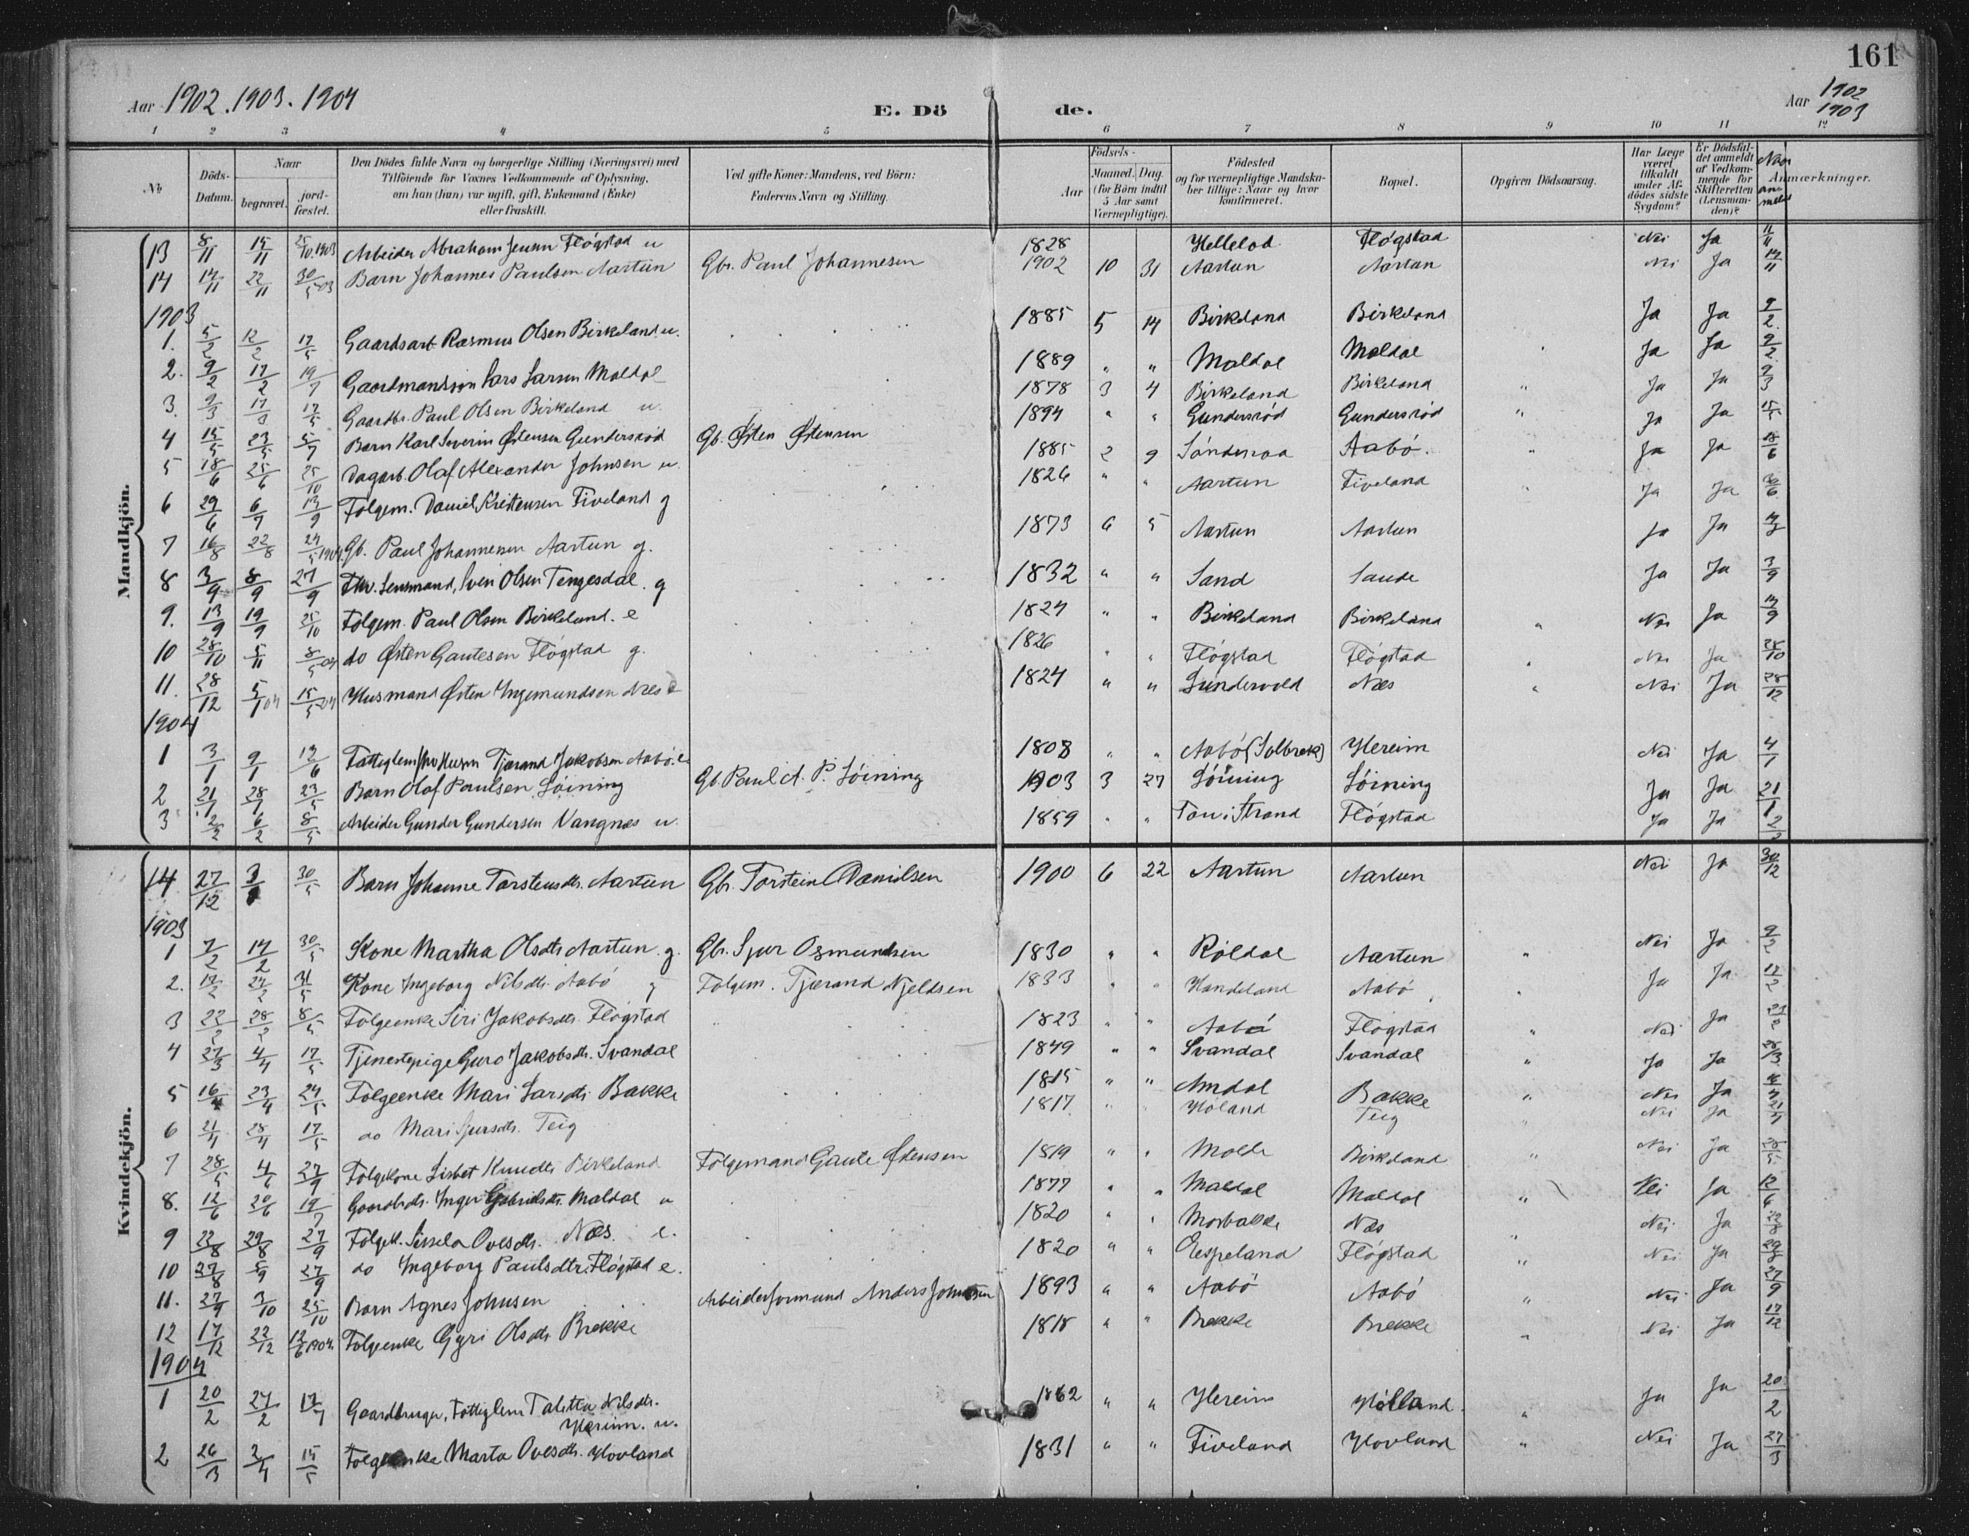 161
Aar 1902. 1903. 1904
E. Dö de.
Aar 1902 1903
1 2 3 4 5 6 7 8 9 10 11 12
No
Döds-Datum.
Naar
begravet.
jord-fæstet.
Den Dödes fulde Navn og borgerlige Stilling (Næringsvei) med
Tilföiende for Voxnes Vedkommende af Oplysning,
om han (hun) var ugift, gift, Enkemand (Enke)
eller fraskilt.
Ved gifte Koner: Mandens, ved Börn:
Faderens Navn og Stilling.
Födsels-
Aar
Maaned. Dag.
(for Börn indtil
5 Aar samt
Værnepligtige).
Födested
og for værnepligtige Mandska-
ber tillige: Naar og hvor
konfirmeret.
Bopæl.
Opgiven Dödsaarsag.
Har Læge
været
tilkaldt
under Af-
dödes sidste
Sygdom?
Er Dödsfal-
det anmeldt
af Vedkom-
mende for
Skifteretten
(Lensman-
den)?
Anmærkninger.
Mandkjön.
13 8/11 15/11 25/10 1903 Arbeider Abraham Jensen Flógstad u 1828 Hellelod Flógstad Nei Ja 11/11
14 14/11 22/11 30/5 03 Barn Johannes Paulsen Aartun Gbr. Paul Johannesen 1902 10 31 Aartun Aartun Nei Ja 14/11
1903
1. 5/2 12/2 17/5 Gaardsarb. Rasmus Olsen Birkeland u. 1885 5 14 Birkeland Birkeland Ja Ja 9/2
2. 9/2 17/2 19/7 Gaardmandssøn Lars Larsen Maldal 1889 " " Maldal Maldal Ja Ja 9/2
3. 9/3 17/3 17/5 Gaardbr. Paul Olsen Birkeland u. 1878 3 4 Birkeland Birkeland " Ja Ja 9/3
4 15/5 23/5 5/7 Barn Karl Severin Østensen Gundersrød Gb. Østen Østensen 1894 " " Gundersród Gundersród " Ja Ja 15/5
5 18/6 25/6 25/10 Dagarb. Olaf Alexander Johnsen u. 1885 2 9 Sónderaa Aabó. " Ja Ja 18/6
6 29/6 6/7 13/9 Folgem. Daniel Kristensen Fiveland g 1826 " " Aartun Fiveland Ja Ja
7 16/8 22/8 24/5 1904 Gb. Paul Johannesen Aartun g. 1873 6 5 Aartun Aartun Ja Ja
8 3/9 8/9 27/9 Fhv. Lensmand, Sven Olsen Tengesdal. g 1832 " " Sand Saude Ja Ja 3/9
9. 13/9 19/9 25/10 Folgem. Paul Olsen Birkeland. e 1824 " " Birkeland Birkeland " Nei Ja 14/9
10 28/10 5/11 8/5 04 do Østen Gautesen Flógstad g. 1826 " " Flógstad Flógstad " Nei Ja 28/10
11. 28/12 5/1 04 15/5 04 Husmand Østen Ingemundsen Næs e 1824 " " Sundervold Næs " Nei Ja 28/12
1904
1 3/1 9/1 12/6 Fattiglem Tjærand Jakobsen Aabó. e 1808 " " Aabó (Solbrek) Hereim Nei Ja 4/1
2 21/1 28/1 23/5 Barn Olaf Paulsen Lóining Gb Paul A. P. Lóining 1903 3 27 Lóining Lóining Ja Ja 21/1
3 2/2 6/2 8/5 Arbeider Gunder Gundersen Vangnæs u. 1859 " " Tou i Strand Flógstad Ja Ja 2/2
Kvindekjön.
14. 27/12 30/5 Barn Johanne Torsteinsdtr. Aartun Gbr. Torstein Danielsen 1900 6 22 Aartun Aartun Nei Ja 30/12
1903
1 7/2 14/2 30/5 Kone Martha Olsdtr Aartun g. Gbr. Sjur Osmundsen 1830 " " Róldal Aartun " Nei Ja 9/2
2. 12/2 24/2 31/5 Kone Ingeborg Nilsdtr. Aabó g Folgem. Tjærand Njeldsen 1833 " " Handeland Aabó " Ja Ja 12/2
3 22/2 28/2 8/5 Folgeenke Siri Jakobsdtr. Flógstad 1823 " " Aabó Flógstad " Nei Ja
4 27/3 4/4 17/5 Tjenestepige Guro Jakobsdtr. Svandal 1849 " " Svandal Svandal " Ja Ja 28/3
5 16/4 23/4 24/5 Folgeenke Mari Larsdtr. Bakke 1815 " " Amdal Bakke " Nei Ja
6 21/4 28/4 17/5 do Mari Sjursdtr. Teig 1817. " " Hóland Teig Nei Ja 21/4
7 28/5 4/6 27/9 Folgekone Lisbet Knudtr Birkeland Folgemand Gaute Østensen 1819 " " Molde Birkeland " Nei Ja 28/5
8. 12/6 20/6 19/7 Gaardbdtr. Inger Gabrielsdtr. Maldal u 1877 " " Maldal Maldal " Nei Ja 12/6
9 22/8 29/8 27/9 Folgek. Sissela Ovesdtr. Næs. e. 1820 " " Morbakke Næs " Nei Ja
10 27/8 5/9 27/9 do Ingeborg Paulsdtr. Flógstad e. 1820 " " Espeland Flógstad " Nei Ja
11. 27/9 3/10 25/10 Barn Agnes Johnsen Arbeiderformand Anders Johnsen 1893 " " Aabó Aabó " Nei Ja 27/9
12 17/12 22/12 12/6 1904 Folgeenke Gyri Olsdtr Brekke 1818 " " Brekke Brekke " Nei Ja 17/12
1904
1 20/2 27/2 17/7 Gaardbruger, Fattiglem Talitta Nilsdtr.
Hereim. u. 1862 " " Hereim Hólland. " Ja Ja 20/2
2 26/3 3/4 15/5 Folgeenke Marta Ovesdtr. Hovland 1831 " " Fiveland Hovland " Nei Ja 27/3